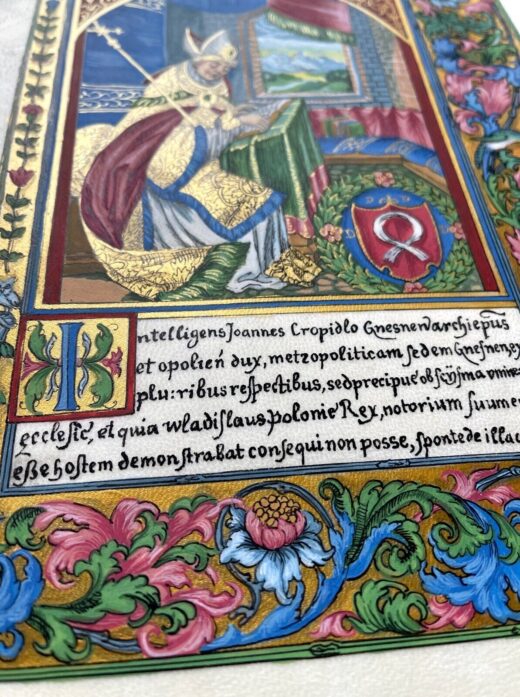 Intelligens Joannes Cropidlo Gneſnen archiepūs
et opolień dux, metropoliticam ſedem Gneſnen, ex
plu:ribus reſpectibus, sed precipue ob
eccleſie, et quia wladiſlaus, polonie Rex, notorium suum
eſſe hoſtem demonſtrabat conſequi non poſſe, ſponte de illa